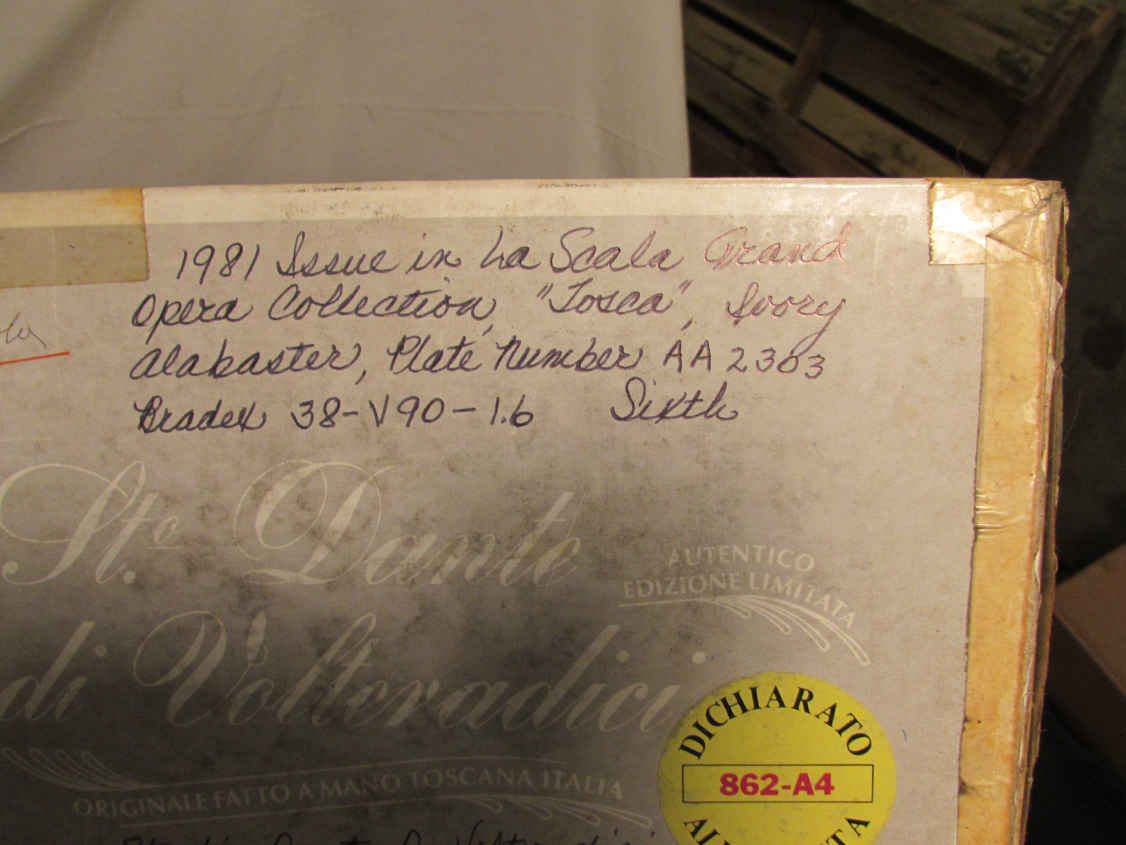 1981 Issue in La Scala Grand
Opera Collection, "Tosca", Ivory
Alabaster, Plate Number AA2303
Bradex 38-V90-1.6 Sixth
Sto. Dante
di Volteradici
AUTENTICO
EDIZIONE LIMITATA
ORIGINALE FATTO A MANO TOSCANA ITALIA
DICHIARATO
862-A4